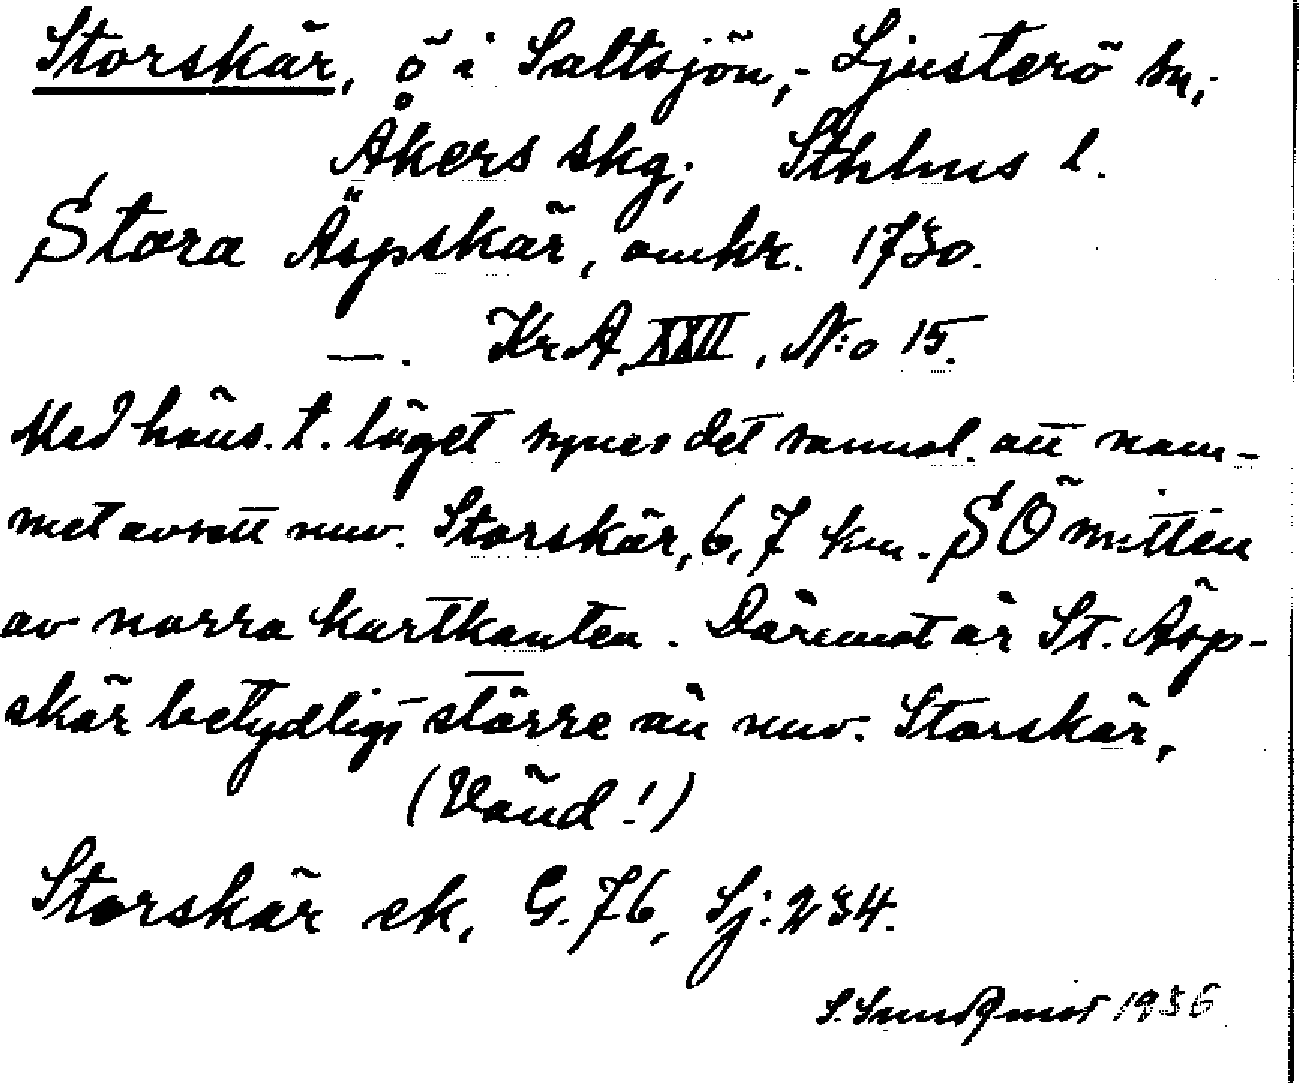 Storskär, ö i Saltsjön, Ljusterö sn,
Åkers skg, Sthlms l.
Stora Äspskär, omkr. 1730.
—. KrA, XXII, N:o 15.
Med häns. t. läget synes det sannol. att nam-
net avsett nuv. Storskär, 6,7 km. SÖ mitten
av norra kartkanten. Däremot är St. Äsp-
skär betydligt större än nuv. Storskär,
(Vänd!)
Storskär ek, G. 76, Sj: 234.
S. Sundqvist 1936